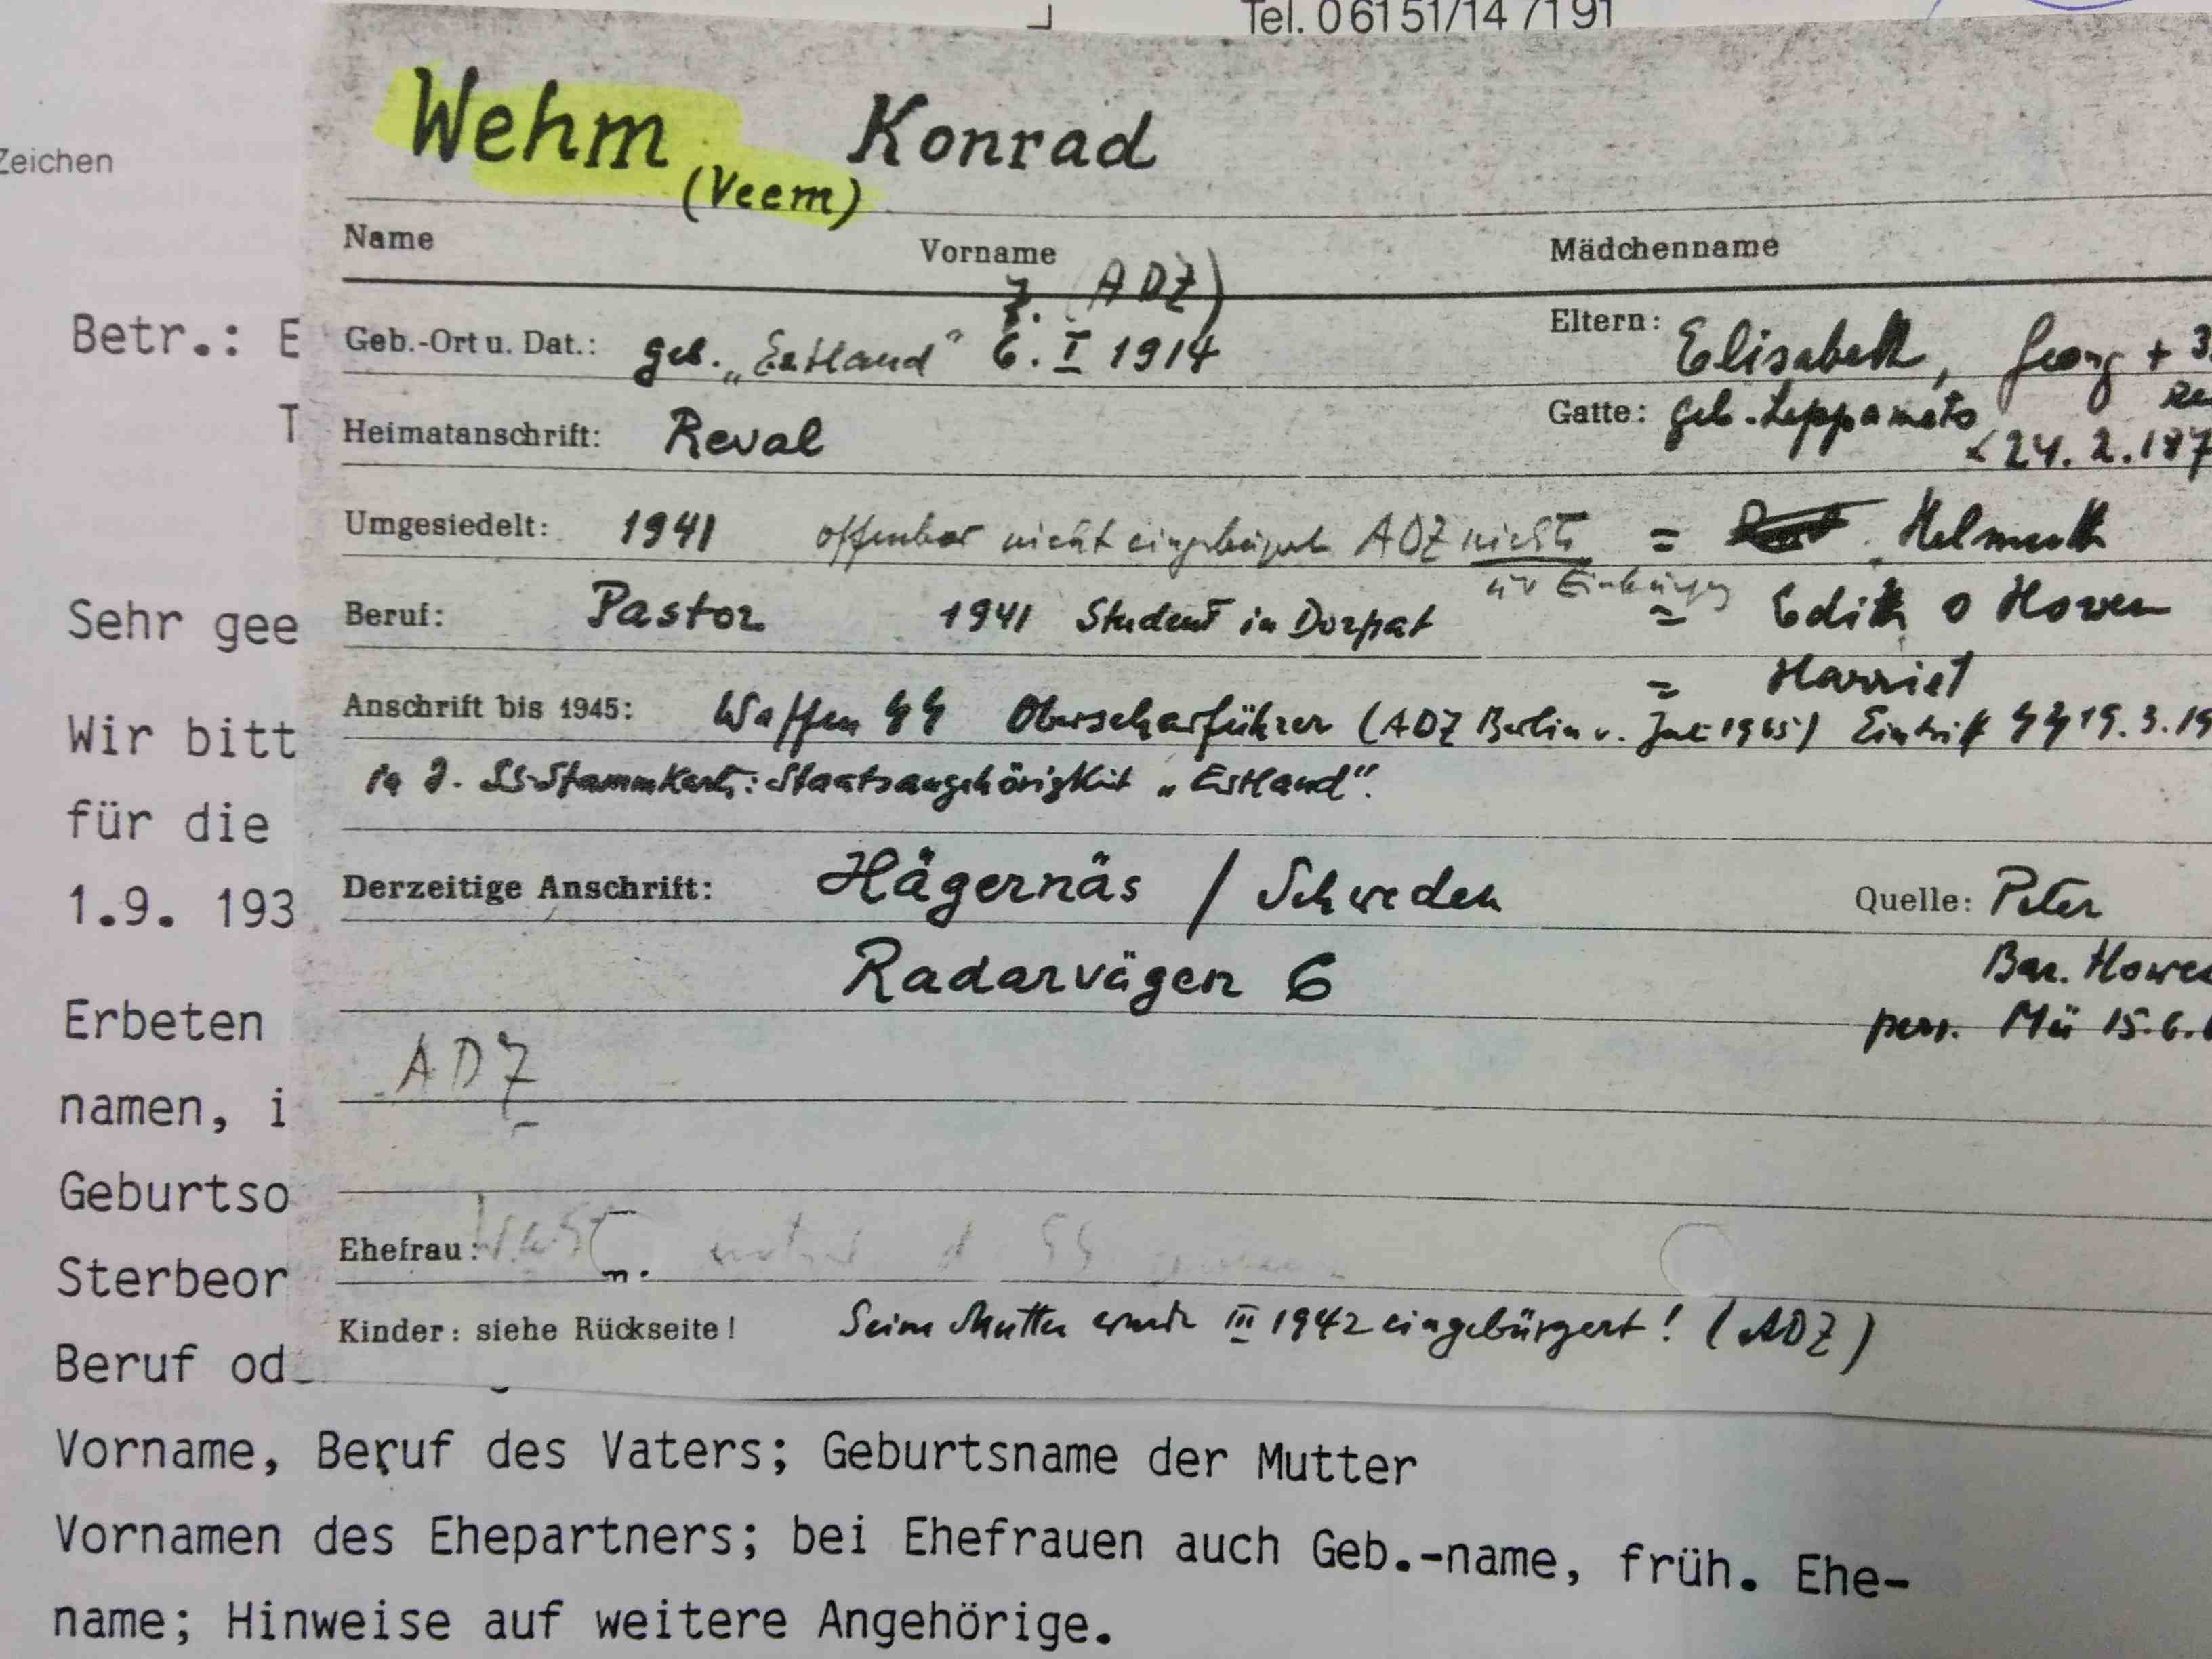 Tel. 06151/14 7191
Zeichen
Wehm Konrad
(Veem)
Name Vorname Mädchenname
7. (ADZ)
Geb.-Ort u. Dat.: geb. „Estland“ 6. I 1914 Eltern: Elisabeth, Georg + 3
Heimatanschrift: Reval Gatte: geb. Leppamets
< 24. 2. 187
Umgesiedelt: 1941 offenbar nicht eingebürgert ADZ nichts = Helmuth
Beruf: Pastor 1941 Student in Dorpat = Edith o Howen
= Harriet
Anschrift bis 1945: Waffen SS Oberscharführer (ADZ Berlin v. 1965) Eintritt SS 19.3.19
in d. SS-Stammkarte: Staatsangehörigkeit „Estland“.
Derzeitige Anschrift: Hägernäs / Schweden Quelle: Peter
Radarvägen 6 Bar. Howen
pers. Mü 15.6.
ADZ
Ehefrau:
Kinder: siehe Rückseite! Seine Mutter wurde III 1942 eingebürgert! (ADZ)
Betr.: E
T
Sehr gee
Wir bitt
für die
1.9. 193
Erbeten
namen, i
Geburtso
Sterbeor
Beruf od
Vorname, Beruf des Vaters; Geburtsname der Mutter
Vornamen des Ehepartners; bei Ehefrauen auch Geb.-name, früh. Ehe-
name; Hinweise auf weitere Angehörige.